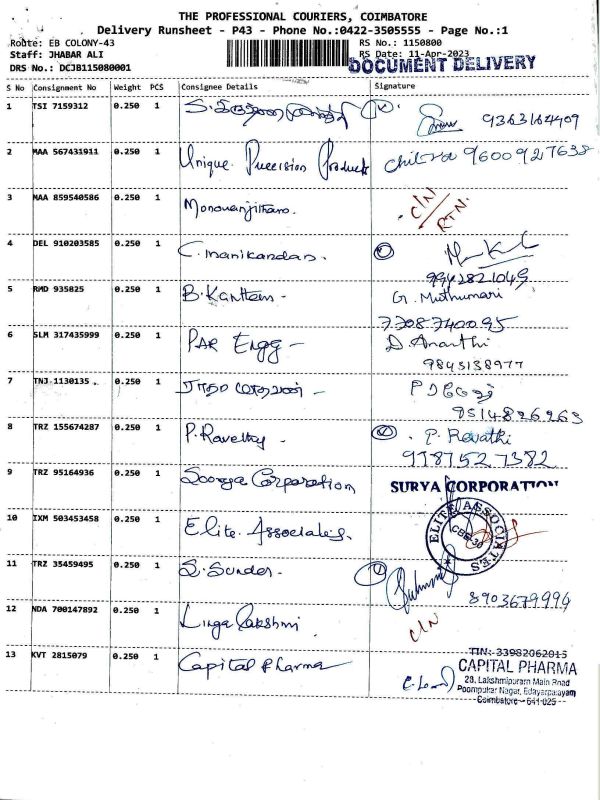 THE PROFESSIONAL COURIERS, COIMBATORE
Delivery Runsheet - P43 - Phone No.:0422-3505555 - Page No.:1
Route: EB COLONY-43 RS No.: 1150800
Staff: JHABAR ALI RS Date: 11-Apr-2023
DRS No.: DCJB115080001 DOCUMENT DELIVERY
S No Consignment No Weight PCS Consignee Details Signature
1 TSI 7159312 0.250 1 9363164409
2 MAA 567431911 0.250 1 Unique Precision Products Chitra 9600927638
3 MAA 859540586 0.250 1 C/N RTN.
4 DEL 910203585 0.250 1 C. manikandan.
9942821049
5 RMD 935825 0.250 1 B. G. Muthumari
7708740095
6 SLM 317435999 0.250 1 PAR Engg - D. Ananthi
9843138977
7 TNJ 1130135 0.250 1
9514826263
8 TRZ 155674287 0.250 1 P. Revathi
9787527382
9 TRZ 95164936 0.250 1 Soorya Corporation SURYA CORPORATION
10 IXM 503453458 0.250 1 Elite Associates ELITE ASSOCIATES
CBE-30
11 TRZ 35459495 0.250 1 S. Sunder.
8903679994
12 NDA 700147892 0.250 1 Linga Lakshmi C/N
13 KVT 2815079 0.250 1 Capital Pharma TIN:-33982062015
CAPITAL PHARMA
28, Lakshmipuram Main Road
Poompukar Nagar, Edayarpalayam
Coimbatore - 641 025